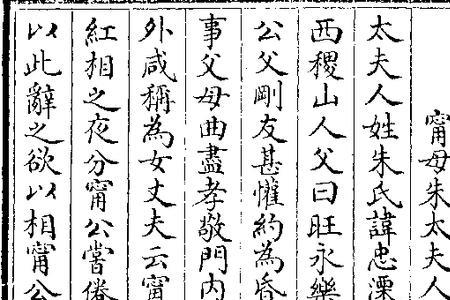 甯母朱太夫人
太夫人姓朱氏諱忠溧
西稷山人父曰旺永樂
公父剛友甚懽約為昏
事父母曲盡孝敬門内
外咸稱為女丈夫云甯
紅相之夜分甯公嘗倦
以此辭之欲以相甯公